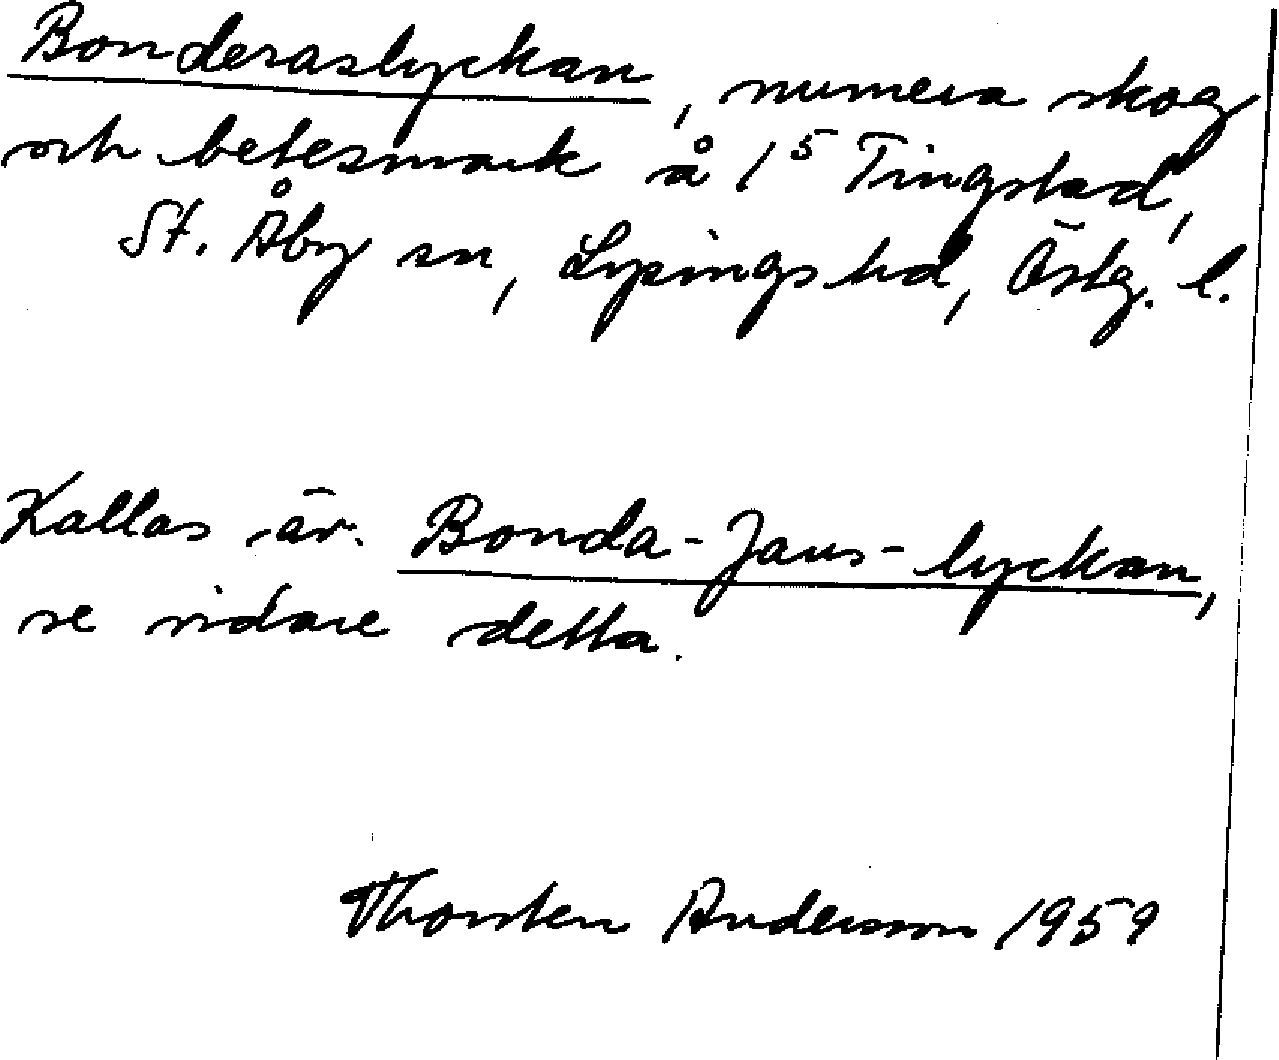 Bonderaslyckan, numera skog
och betesmark å 1⁵ Tingstad,
St. Åby sn, Lysings hd, Östg. l.
Kallas äv. Bonda-Jans-lyckan,
se vidare detta.
Thorsten Andersson 1959